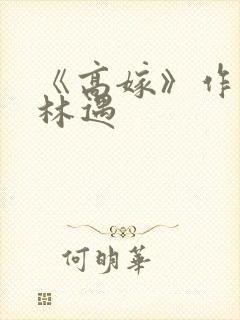 《高嫁》作
林遇
何明華